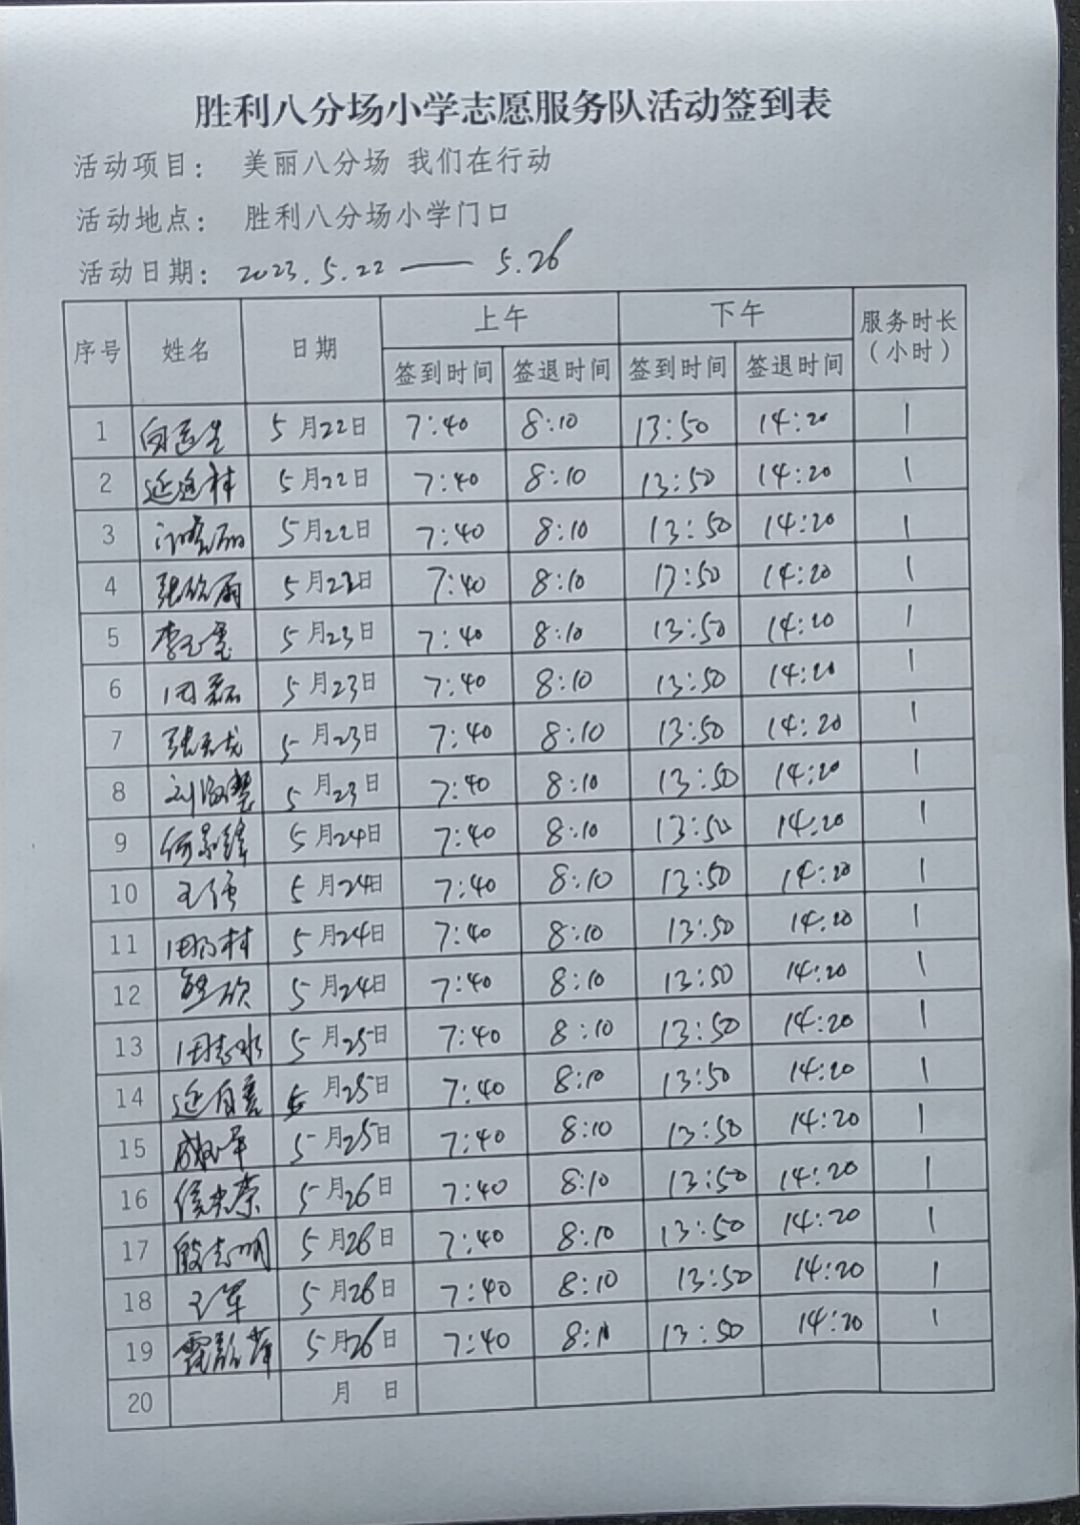 胜利八分场小学志愿服务队活动签到表
活动项目： 美丽八分场 我们在行动
活动地点： 胜利八分场小学门口
活动日期： 2023.5.22 —— 5.26
序号 姓名 日期 上午 下午 服务时长（小时）
签到时间 签退时间 签到时间 签退时间
1 5月22日 7:40 8:10 13:50 14:20 1
2 5月22日 7:40 8:10 13:50 14:20 1
3 5月22日 7:40 8:10 13:50 14:20 1
4 张欣雨 5月 日 7:40 8:10 14:20 1
5 5月23日 7:40 8:10 13:50 14:20 1
6 田磊 5月23日 7:40 8:10 13:50 14:20 1
7 5月23日 7:40 8:10 13:50 14:20 1
8 5月23日 7:40 8:10 13:50 14:20 1
9 5月24日 7:40 8:10 13:50 14:20 1
10 王强 5月24日 7:40 8:10 13:50 14:20 1
11 5月24日 7:40 8:10 13:50 14:20 1
12 5月24日 7:40 8:10 13:50 14:20 1
13 田志水 5月25日 7:40 8:10 13:50 14:20 1
14 5月25日 7:40 8:10 13:50 14:20 1
15 5月25日 7:40 8:10 13:50 14:20 1
16 5月26日 7:40 8:10 13:50 14:20 1
17 殷志明 5月26日 7:40 8:10 13:50 14:20 1
18 王军 5月26日 7:40 8:10 13:50 14:20 1
19 5月26日 7:40 8:1 13:50 14:20 1
20 月 日